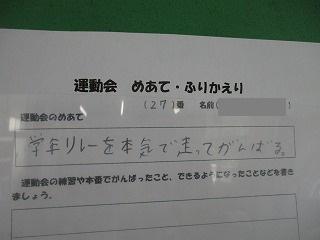 運動会 めあて・ふりかえり
(27)番 名前( )
運動会のめあて
学年リレーを本気で走ってがんばる。
運動会の練習や本番でがんばったこと、できるようになったことなどを書き
ましょう。